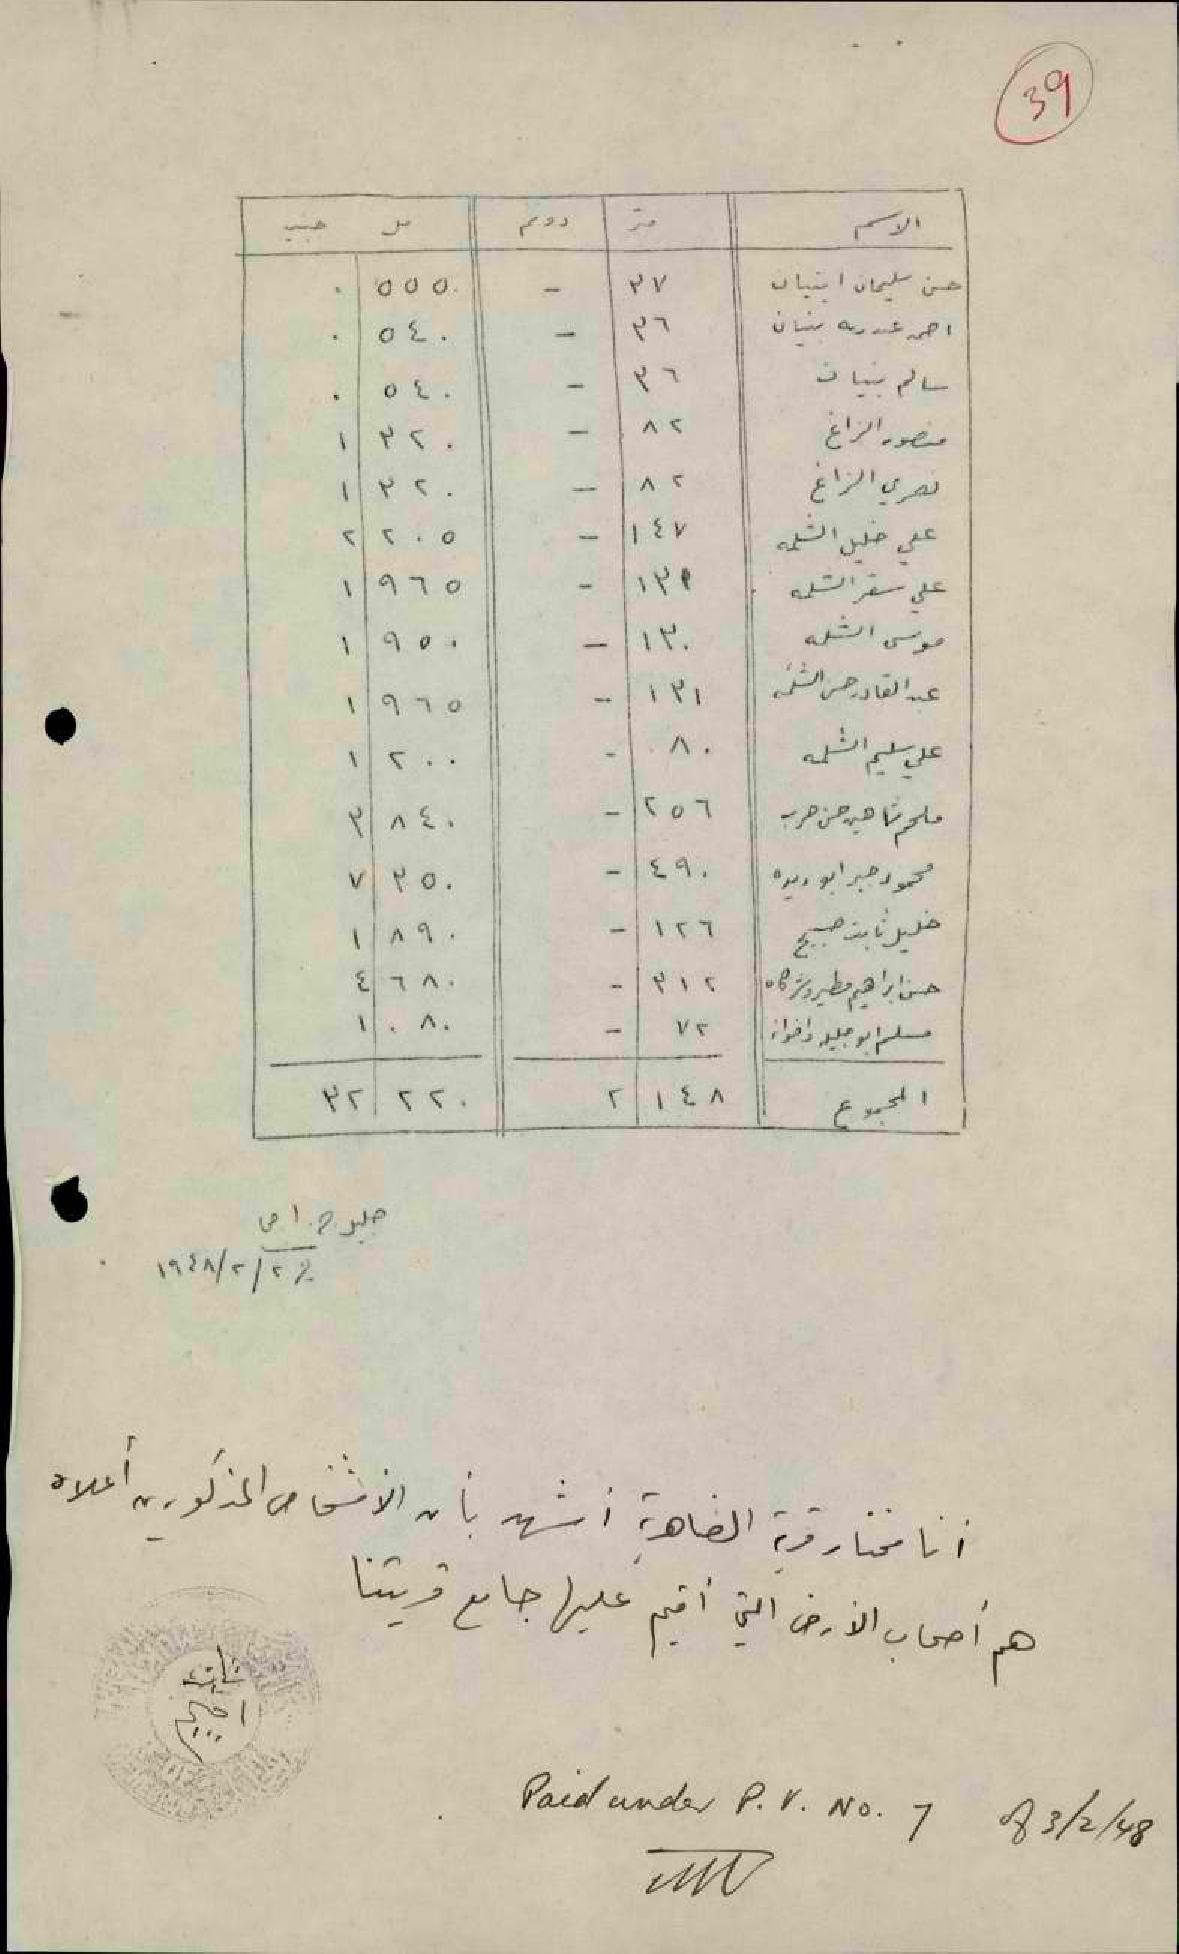 39
الاسم متر دونم مل جنيه
حسن سليمان ابنيان ٣٧ - ٥٥٥ ٠
احمد عبد ربه بنيان ٣٦ - ٥٤٠ ٠
سالم بنيان ٣٦ - ٥٤٠ ٠
منصور الزاغ ٨٢ - ٣٢٠ ١
نصري الزاغ ٨٢ - ٣٢٠ ١
علي خليل الشلمه ١٤٧ - ٢٠٥ ٢
علي سقر الشلمه ١٣١ - ٩٦٥ ١
موسى الشلمه ١٣٠ - ٩٥٠ ١
عبد القادر حسن الشلمه ١٣١ - ٩٦٥ ١
علي سليم الشلمه ٨٠ - ٢٠٠ ١
ملحم شاهين حسن حرب ٢٥٦ - ٨٤٠ ٣
محمود جبر ابو ريده ٤٩٠ - ٣٥٠ ٧
خليل ثابت صبيح ١٢٦ - ٨٩٠ ١
حسن ابراهيم مطير وشركاه ٣١٢ - ٦٨٠ ٤
مسلم ابو جليد واخوانه ٧٢ - ٠٨٠ ١
المجموع ١٤٨ ٢ ٢٢٠ ٣٢
١٩٤٨/٢/٢
أنا مختار قرية الضاهرية أشهد بأن الأشخاص المذكورين أعلاه
هم أصحاب الأرض التي أقيم عليها جامع قريتنا
Paid under P.V. No. 7 of 3/2/48